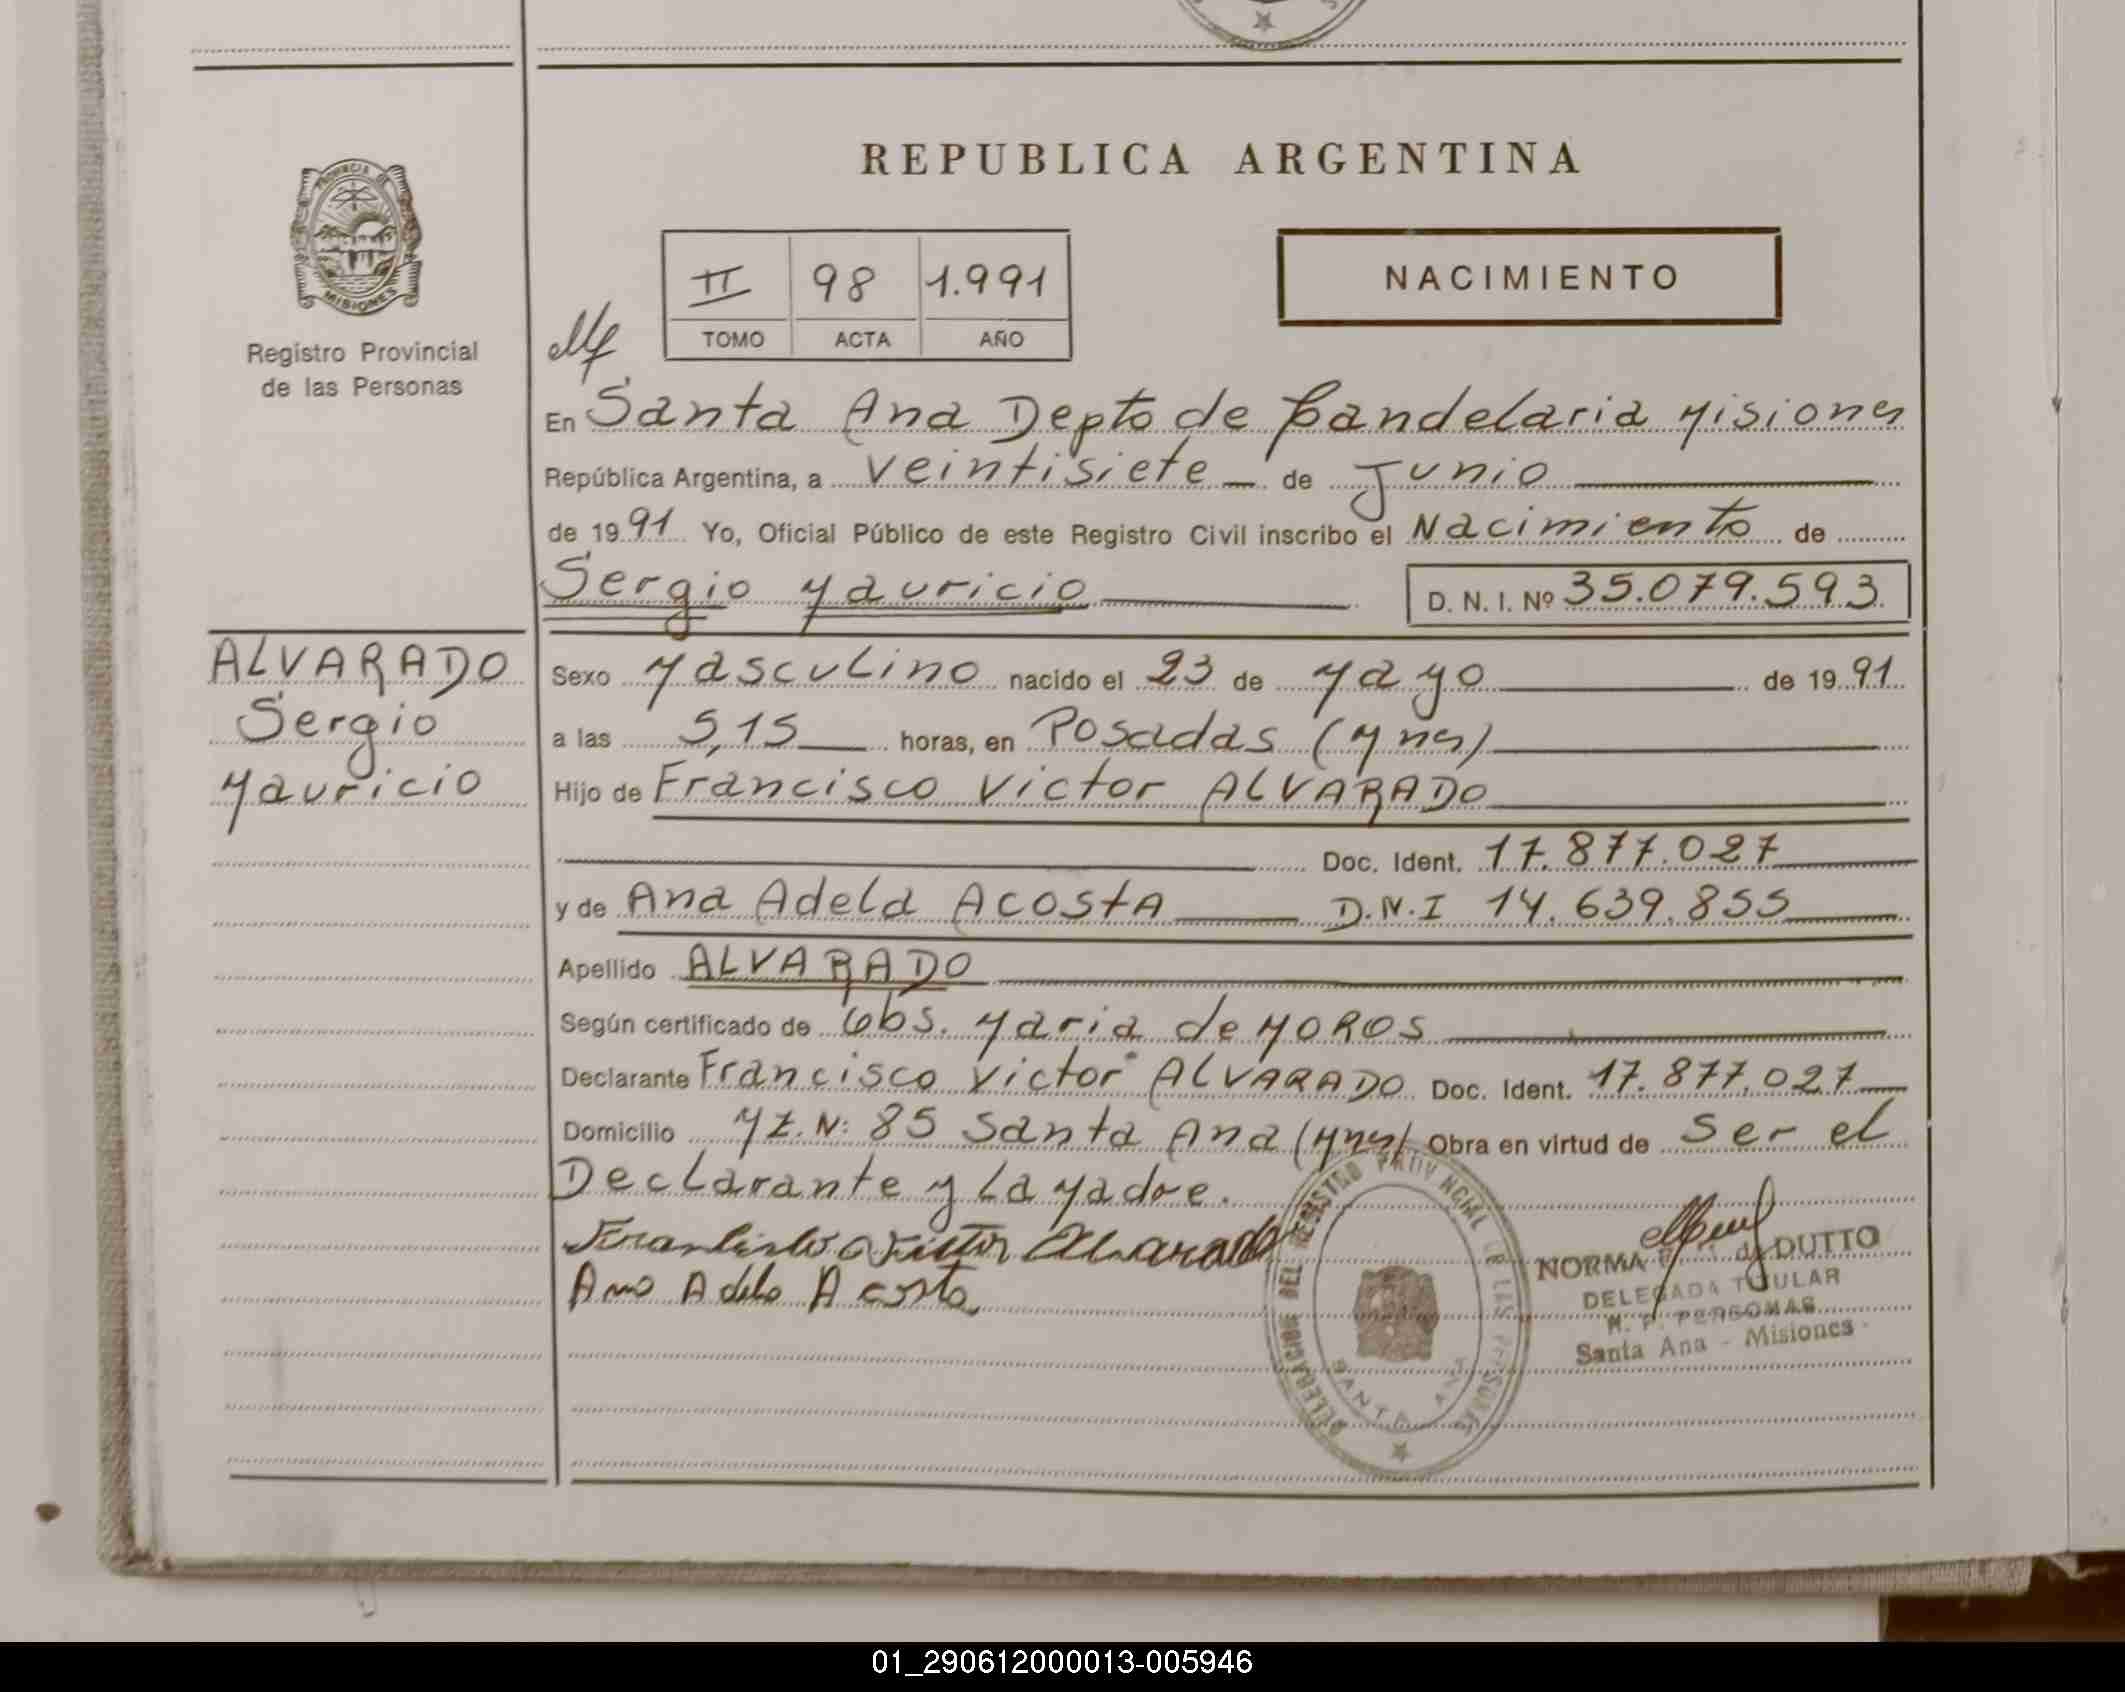 REPUBLICA ARGENTINA
PROVINCIA DE
MISIONES
Registro Provincial
de las Personas
II 98 1.991
TOMO ACTA AÑO
NACIMIENTO
En Santa Ana Depto de Candelaria Misiones
República Argentina, a veintisiete de Junio
de 1991 Yo, Oficial Público de este Registro Civil inscribo el Nacimiento de
Sergio Mauricio D. N. I. Nº 35.079.593
ALVARADO
Sergio
Mauricio
Sexo Masculino nacido el 23 de Mayo de 1991
a las 5,15 horas, en Posadas (Mnes)
Hijo de Francisco Victor ALVARADO
Doc. Ident. 17.877.027
y de Ana Adela ACOSTA D.N.I 14.639.855
Apellido ALVARADO
Según certificado de Obs. Maria de MOROS
Declarante Francisco Victor ALVARADO Doc. Ident. 17.877.027
Domicilio MZ. N: 85 Santa Ana (Mnes) Obra en virtud de Ser el
Declarante y La Madre.
Francisco Victor Alvarado
Ana Adela Acosta
DELEGACION DEL REGISTRO PROVINCIAL DE LAS PERSONAS
SANTA ANA
NORMA de DUTTO
DELEGADA TITULAR
R. P. PERSONAS
Santa Ana - Misiones
01_290612000013-005946